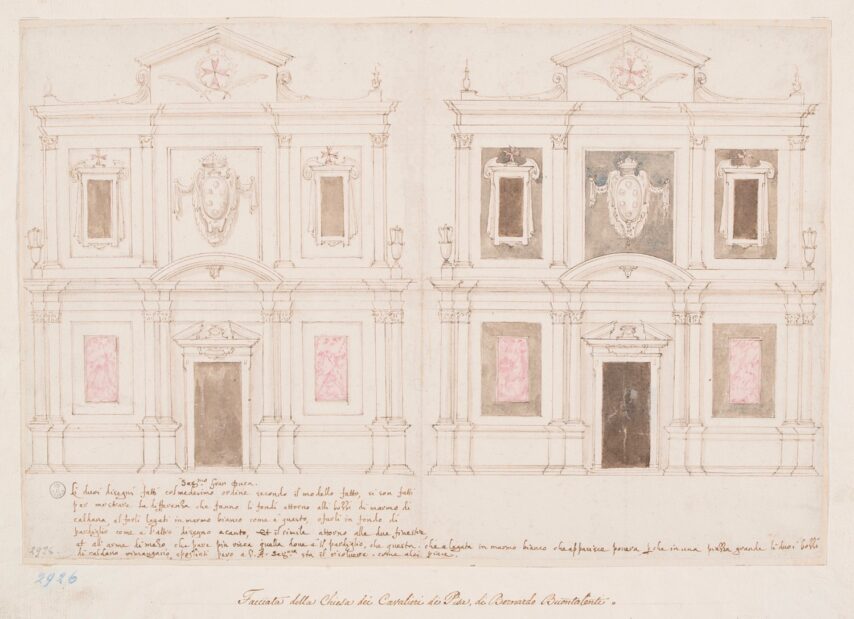 Ser.mo Gran Duca.
Li duoi disegni fatti col medesimo ordine secondo il modello fatto, si son fatti
per mostrare la differenza che fanno li fondi attorno alli di marmo di
caldana, al farli legati in marmo bianco come è questo, o farli in fondo di
bardiglio come è l'altro disegno acanto, et il simile attorno alle due finestre
et all'arme di mezo che pare più ricca quella dove è il bardiglio, che questa che è legata in marmo bianco che apparisce povera che in una piazza grande li duoi
di caldana però a V. A. Ser.ma sta il risolvere come piace.
2926
2926
Facciata della Chiesa dei Cavalieri di Pisa, di Bernardo Buontalenti.